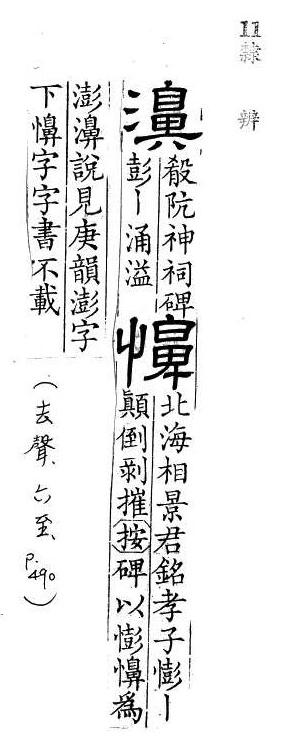 隸辨
濞 殽阬神祠碑
彭丨涌溢
㥜 北海相景君銘孝子憉丨
顚倒剥摧按碑以憉㥜爲
澎濞說見庚韻澎字
下㥜字字書不載
(去聲、六至、P.490)